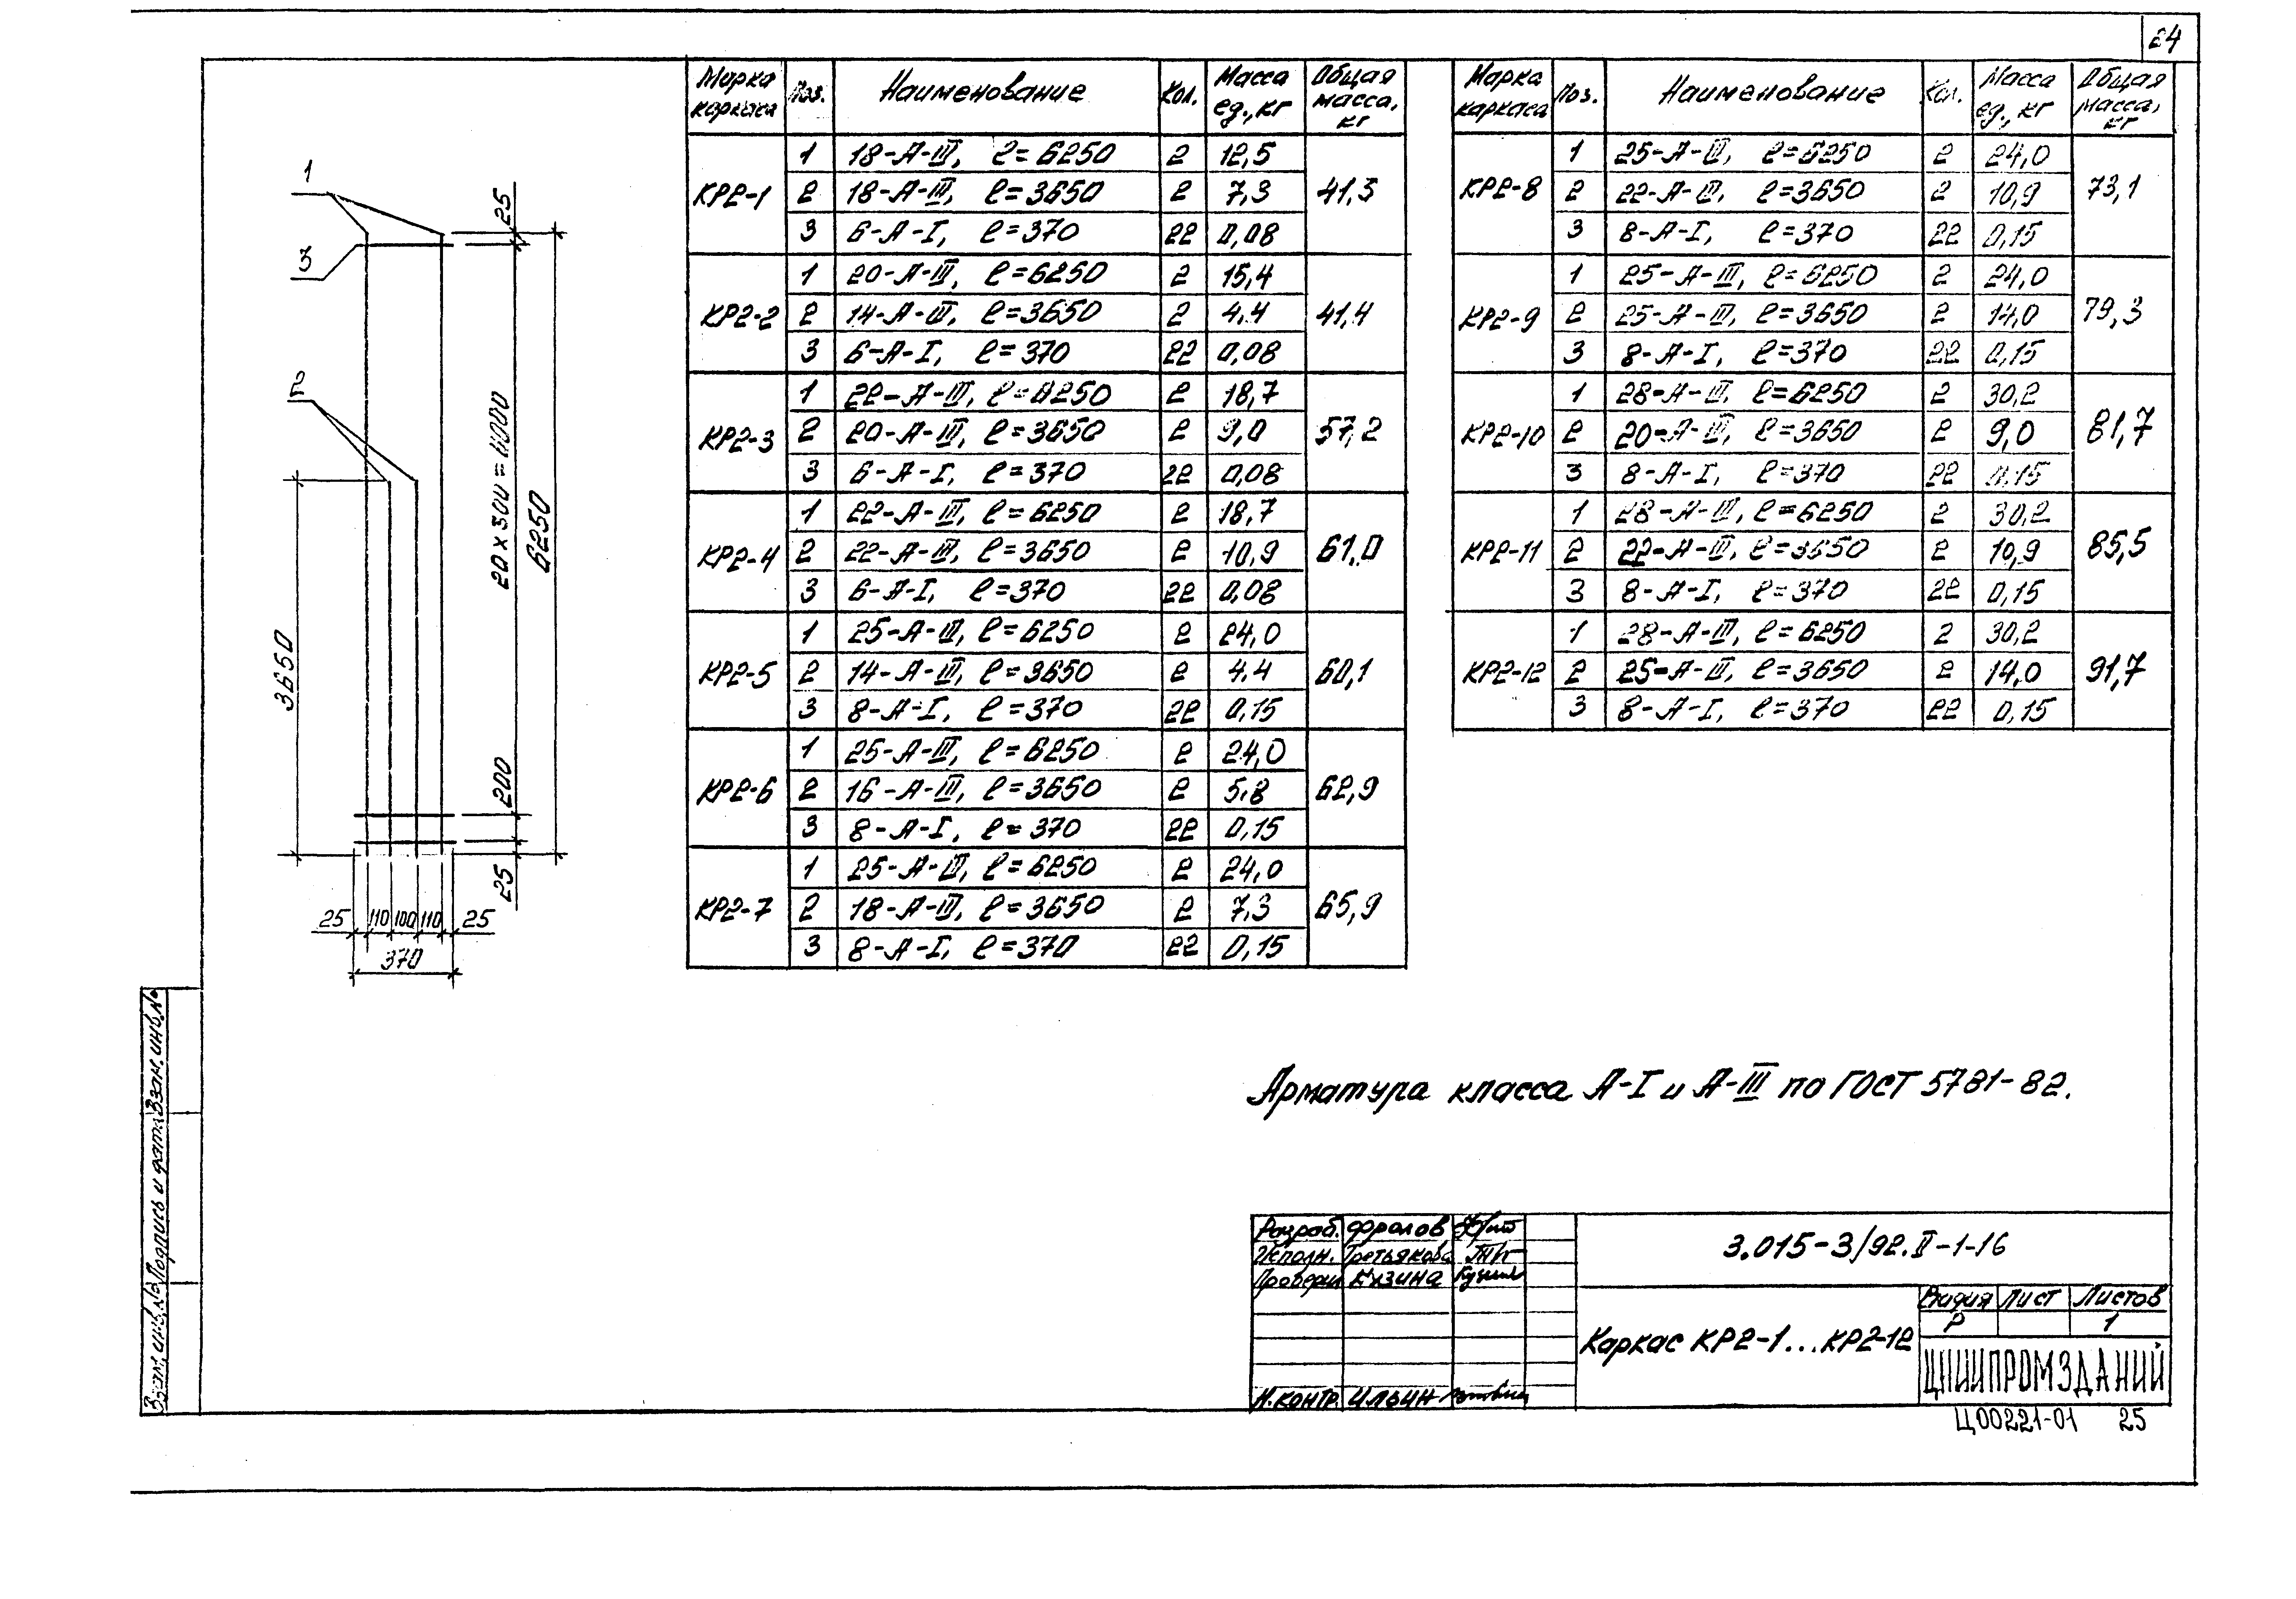 24
Марка каркаса Поз. Наименование Кол. Масса ед., кг Общая масса, кг
КР2-1 41,3
1 18-А-III, ℓ=6250 2 12,5
2 18-А-III, ℓ=3650 2 7,3
3 6-А-I, ℓ=370 22 0,08
КР2-2 41,4
1 20-А-III, ℓ=6250 2 15,4
2 14-А-III, ℓ=3650 2 4,4
3 6-А-I, ℓ=370 22 0,08
КР2-3 57,2
1 22-А-III, ℓ=6250 2 18,7
2 20-А-III, ℓ=3650 2 9,0
3 6-А-I, ℓ=370 22 0,08
КР2-4 61,0
1 22-А-III, ℓ=6250 2 18,7
2 22-А-III, ℓ=3650 2 10,9
3 6-А-I, ℓ=370 22 0,08
КР2-5 60,1
1 25-А-III, ℓ=6250 2 24,0
2 14-А-III, ℓ=3650 2 4,4
3 8-А-I, ℓ=370 22 0,15
КР2-6 62,9
1 25-А-III, ℓ=6250 2 24,0
2 16-А-III, ℓ=3650 2 5,8
3 8-А-I, ℓ=370 22 0,15
КР2-7 65,9
1 25-А-III, ℓ=6250 2 24,0
2 18-А-III, ℓ=3650 2 7,3
3 8-А-I, ℓ=370 22 0,15
Марка каркаса Поз. Наименование Кол. Масса ед., кг Общая масса, кг
КР2-8 73,1
1 25-А-III, ℓ=6250 2 24,0
2 22-А-III, ℓ=3650 2 10,9
3 8-А-I, ℓ=370 22 0,15
КР2-9 79,3
1 25-А-III, ℓ=6250 2 24,0
2 25-А-III, ℓ=3650 2 14,0
3 8-А-I, ℓ=370 22 0,15
КР2-10 81,7
1 28-А-III, ℓ=6250 2 30,2
2 20-А-III, ℓ=3650 2 9,0
3 8-А-I, ℓ=370 22 0,15
КР2-11 85,5
1 28-А-III, ℓ=6250 2 30,2
2 22-А-III, ℓ=3650 2 10,9
3 8-А-I, ℓ=370 22 0,15
КР2-12 91,7
1 28-А-III, ℓ=6250 2 30,2
2 25-А-III, ℓ=3650 2 14,0
3 8-А-I, ℓ=370 22 0,15
1
3
2
25
20×300=6000
6250
3650
200
25
25 110 100 110 25
370
Арматура класса А-I и А-III по ГОСТ 5781-82.
Разраб. Фролов
Исполн. Третьякова
Проверил Кузина
Н.контр. Ильин
3.015-3/92.II-1-16
Каркас КР2-1...КР2-12
Стадия Лист Листов
Р 1
ЦНИИПРОМЗДАНИЙ
Ц00221-01 25
Взам. инв.№
Подпись и дата
Взам. инв.№